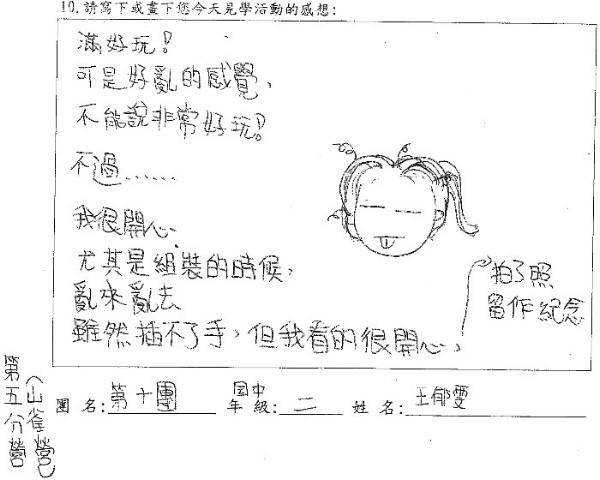 10. 請寫下或畫下您今天見學活動的感想:
滿好玩!
可是好亂的感覺,
不能說非常好玩!
不過......
我很開心.
尤其是組裝的時候,
亂來亂去
雖然插不了手,但我看的很開心,
拍了照
留作紀念
團 名: 第十團 國中 年 級: 二 姓 名: 王郁雯
第五分營
(山雀營)